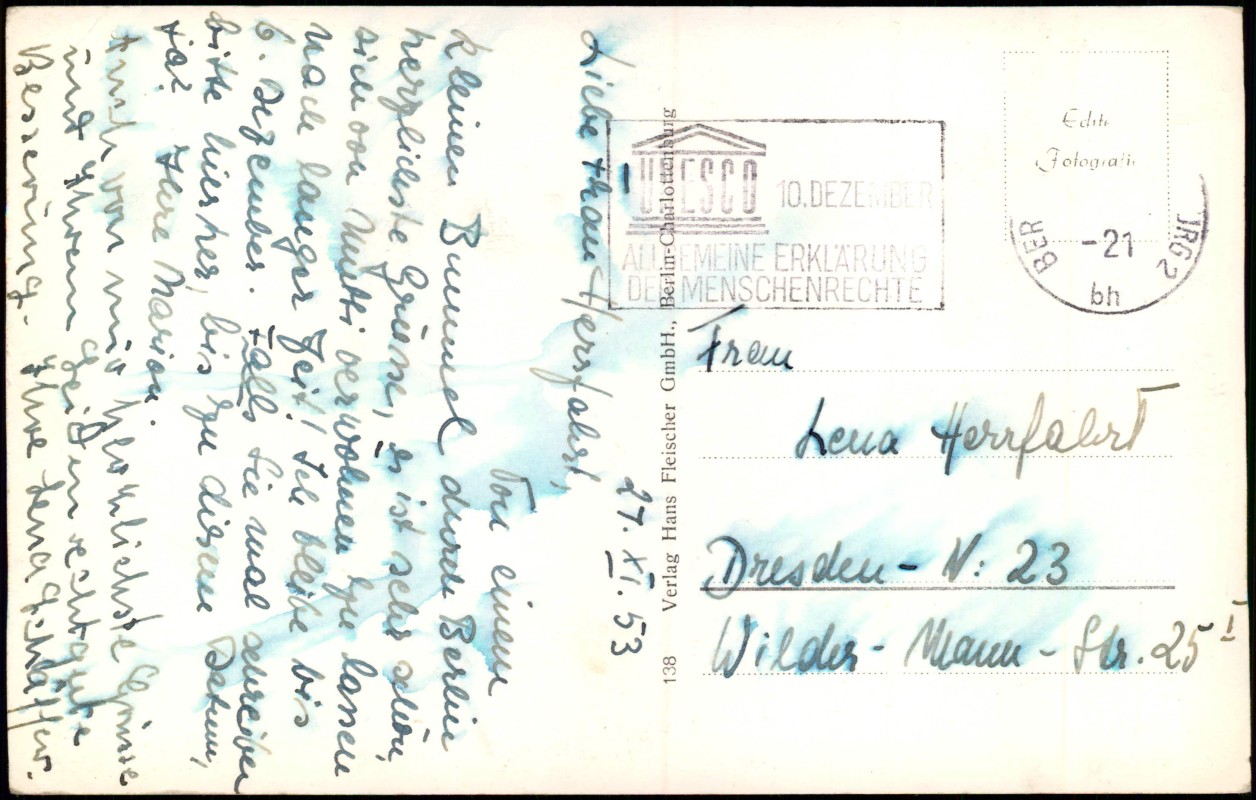 27. XI. 53
Liebe Frau Herrfahrt,
Von einem
kleinen Bummel durch Berlin
herzlichste Grüsse, es ist sehr schön,
sich von Mutti verwöhnen zu lassen
nach langer Zeit! Ich bleibe bis
6. Dezember. Falls Sie mal schreiben
bitte hierher, bis zu diesem Datum,
ja? Ihre Marion.
Auch von mir herzlichste Grüsse
und Ihrem recht gute
Besserung. Ihre
138 Verlag Hans Fleischer GmbH., Berlin-Charlottenburg
UNESCO
10. DEZEMBER
ALLGEMEINE ERKLÄRUNG
DER MENSCHENRECHTE
Echte
Fotografie
BER
-21
bh
Frau
Lena Herrfahrt
Dresden - N: 23
Wilder - Mann - Str. 25 I